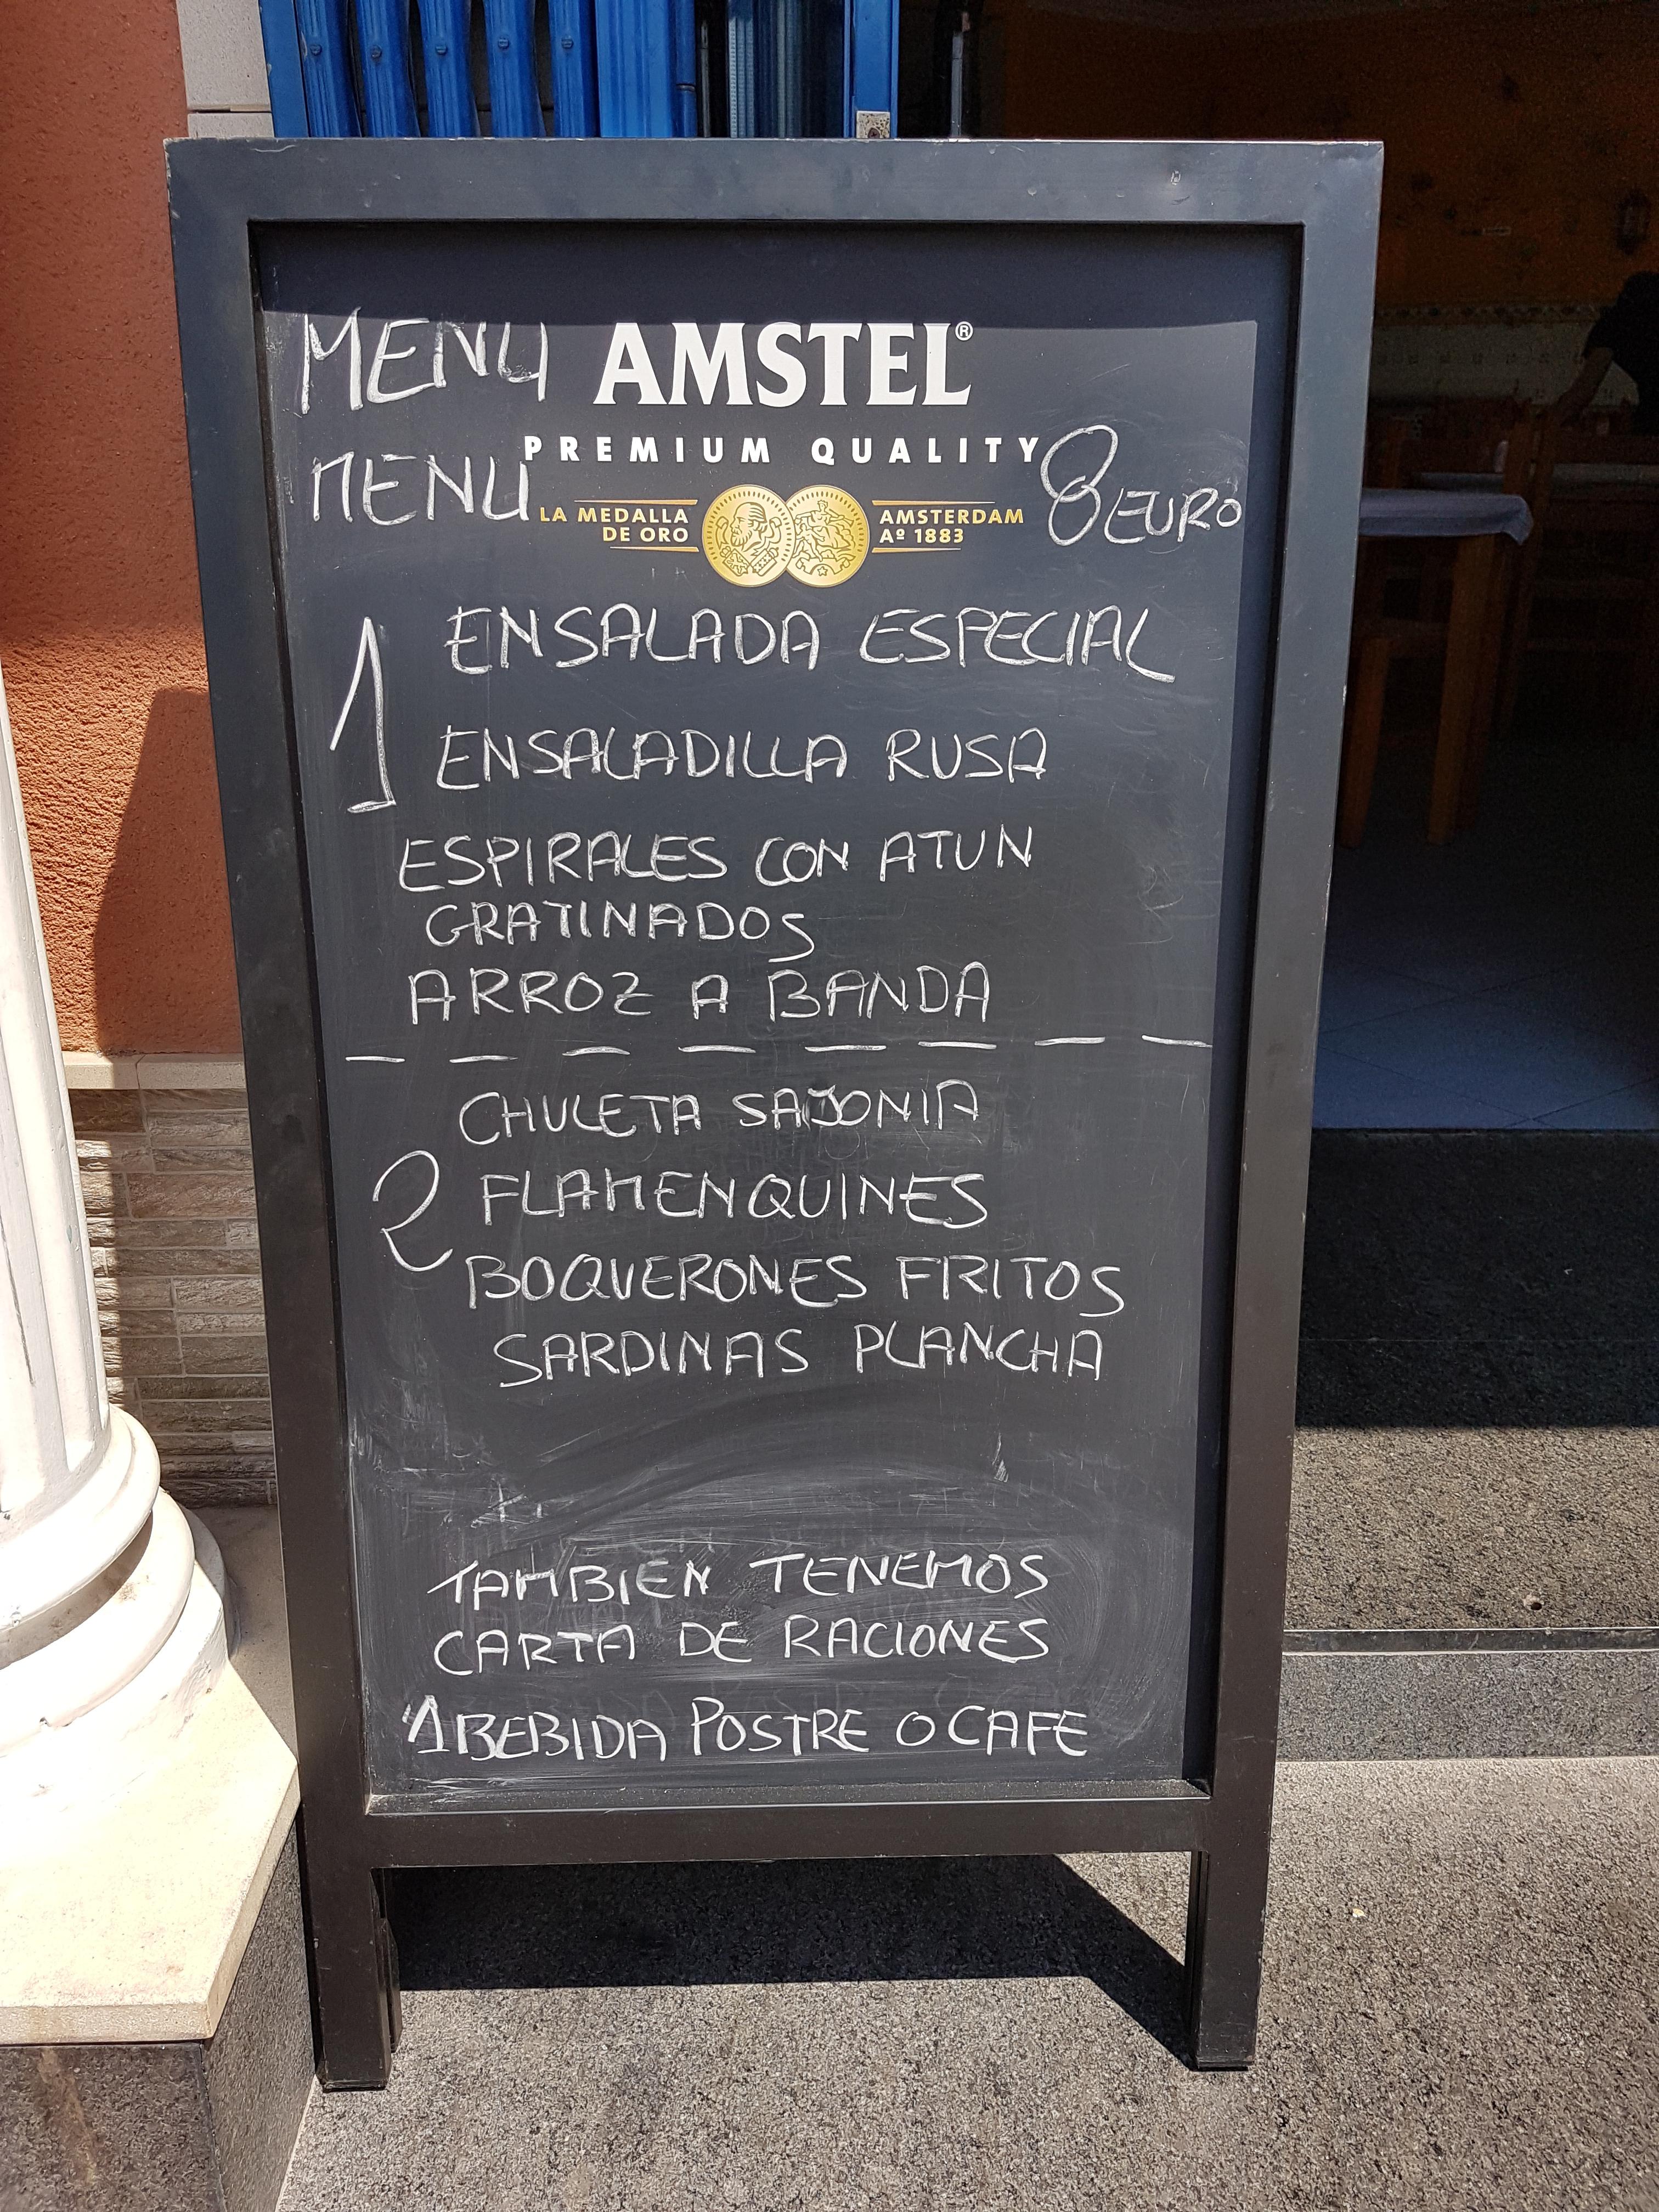 MENU AMSTEL®
PREMIUM QUALITY
MENU 8 EURO
LA MEDALLA DE ORO
AMSTERDAM Aº 1883
1 ENSALADA ESPECIAL
ENSALADILLA RUSA
ESPIRALES CON ATUN
GRATINADOS
ARROZ A BANDA
CHULETA SAJONIA
2 FLAMENQUINES
BOQUERONES FRITOS
SARDINAS PLANCHA
TAMBIEN TENEMOS
CARTA DE RACIONES
1 BEBIDA POSTRE O CAFE